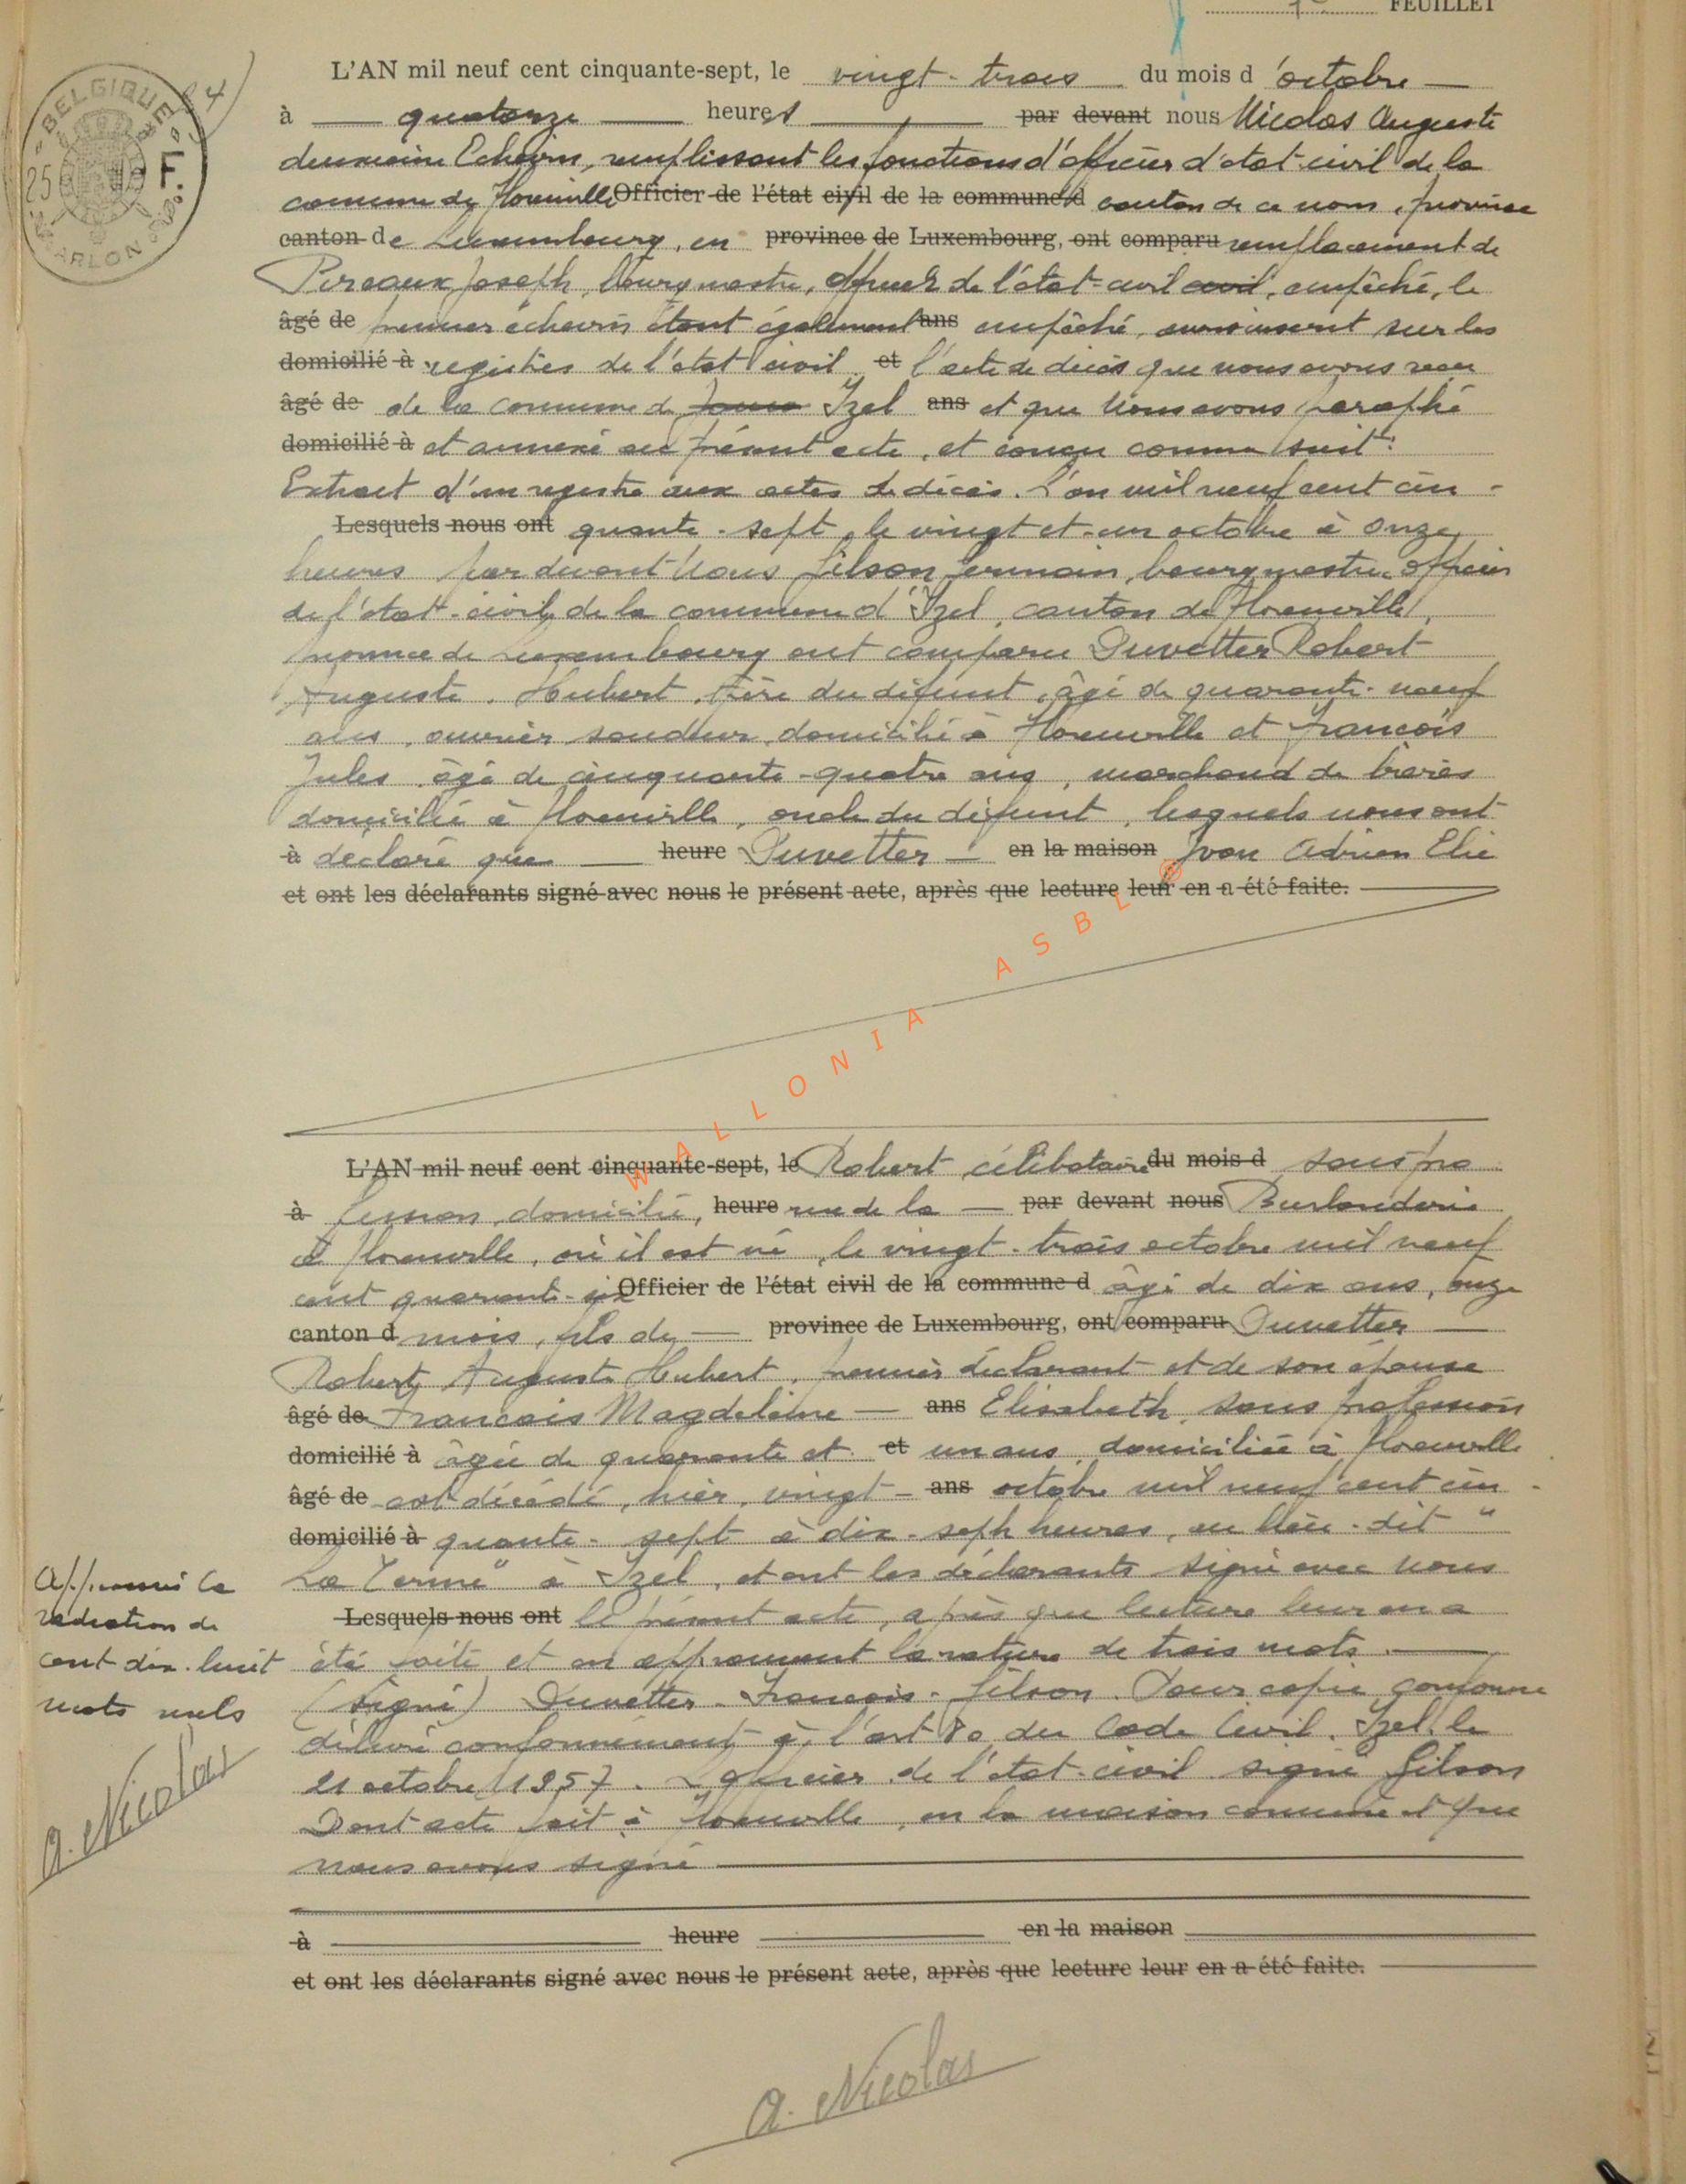 FEUILLET
BELGIQUE
25 F.
ARLON
L'AN mil neuf cent cinquante-sept, le vingt-trois du mois d'octobre
à quatorze heures par devant nous Nicolas Auguste
deuxième Echevin, remplissant les fonctions d'officier d'état-civil de la
commune de Florenville Officier de l'état civil de la commune d canton de ce nom, province
canton de Luxembourg, en province de Luxembourg, ont comparu remplacement de
Pireaux Joseph, bourgmestre, officier de l'état-civil civil, empêché, le
âgé de premier échevin étant également ans empêché, avons inscrit sur les
domicilié à registres de l'état civil et l'acte de décès que nous avons reçu
âgé de de la commune d Izel ans et que nous avons paraphé
domicilié à et annexé au présent acte, et conçu comme suit:
Extrait d'un registre aux actes de décès. L'an mil neuf cent cin-
Lesquels nous ont quante-sept, le vingt et un octobre à onze
heures par devant Nous Gilson Germain, bourgmestre officier
de l'état-civil de la commune d'Izel, canton de Florenville,
province de Luxembourg ont comparu Duvetter Robert
Auguste Hubert, père du défunt, âgé de quarante-neuf
ans, ouvrier soudeur, domicilié à Florenville et François
Jules âgé de cinquante-quatre ans, marchand de
domicilié à Florenville, oncle du défunt, lesquels nous ont
à déclaré que heure Duvetter en la maison Yvon Adrien Elie
et ont les déclarants signé avec nous le présent acte, après que lecture leur en a été faite.
WALLONIA ASBL
L'AN mil neuf cent cinquante-sept, le Robert célibataire du mois d sans pro
à fession, domicilié, heure rue de la par devant nous Burlanderie
à Florenville, où il est né, le vingt-trois octobre mil neuf
cent quarante-six Officier de l'état civil de la commune d âgé de dix ans, onze
canton d mois, fils de province de Luxembourg, ont comparu Duvetter
Robert Auguste Hubert, premier déclarant et de son épouse
âgé de François Magdeleine ans Elisabeth, sans profession
domicilié à âgée de quarante et et un ans, domiciliée à Florenville
âgé de est décédé, hier, vingt ans octobre mil neuf cent cin-
domicilié à quante-sept à dix-sept heures, au lieu-dit "
La " à Izel, et ont les déclarants signé avec nous
Lesquels nous ont le présent acte, après que lecture leur en a
été faite et en approuvant la rature de trois mots.
(signé) Duvetter - François - Gilson. Pour copie conforme
délivré conformément à l'art 80 du Code Civil. Izel, le
21 octobre 1957. L'officier de l'état-civil signé Gilson
Dont acte fait à Florenville, en la maison commune et que
nous avons signé
à heure en la maison
et ont les déclarants signé avec nous le présent acte, après que lecture leur en a été faite.
Approuvé la
radiation de
cent dix-huit
mots nuls
A. Nicolas
A. Nicolas